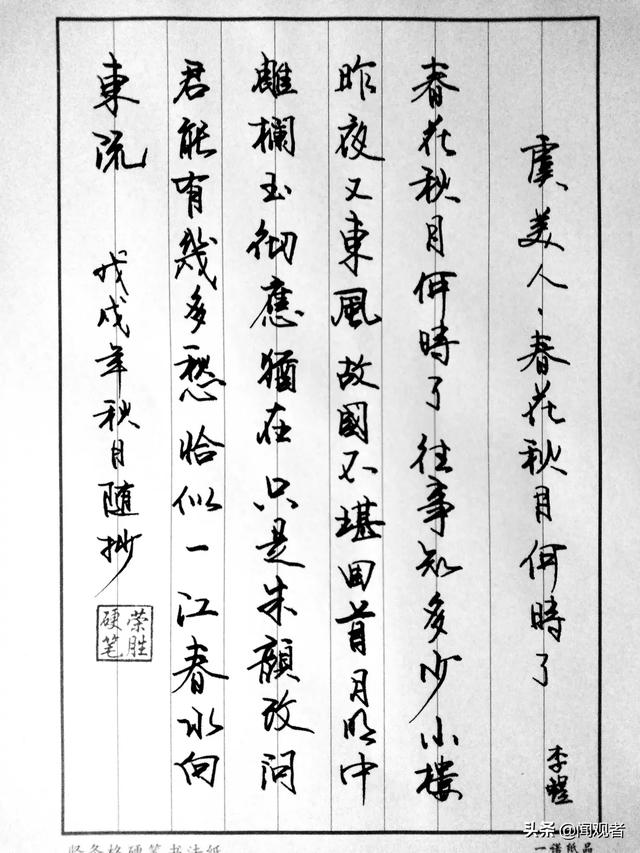 虞美人·春花秋月何時了
李煜
春花秋月何時了往事知多少小樓
昨夜又東風故國不堪回首月明中
離欄玉彻應猶在只是朱顏改問
君能有幾多愁恰似一江春水向
東流
戊戌年秋月随抄
荣胜
硬笔
头条 @闻观者